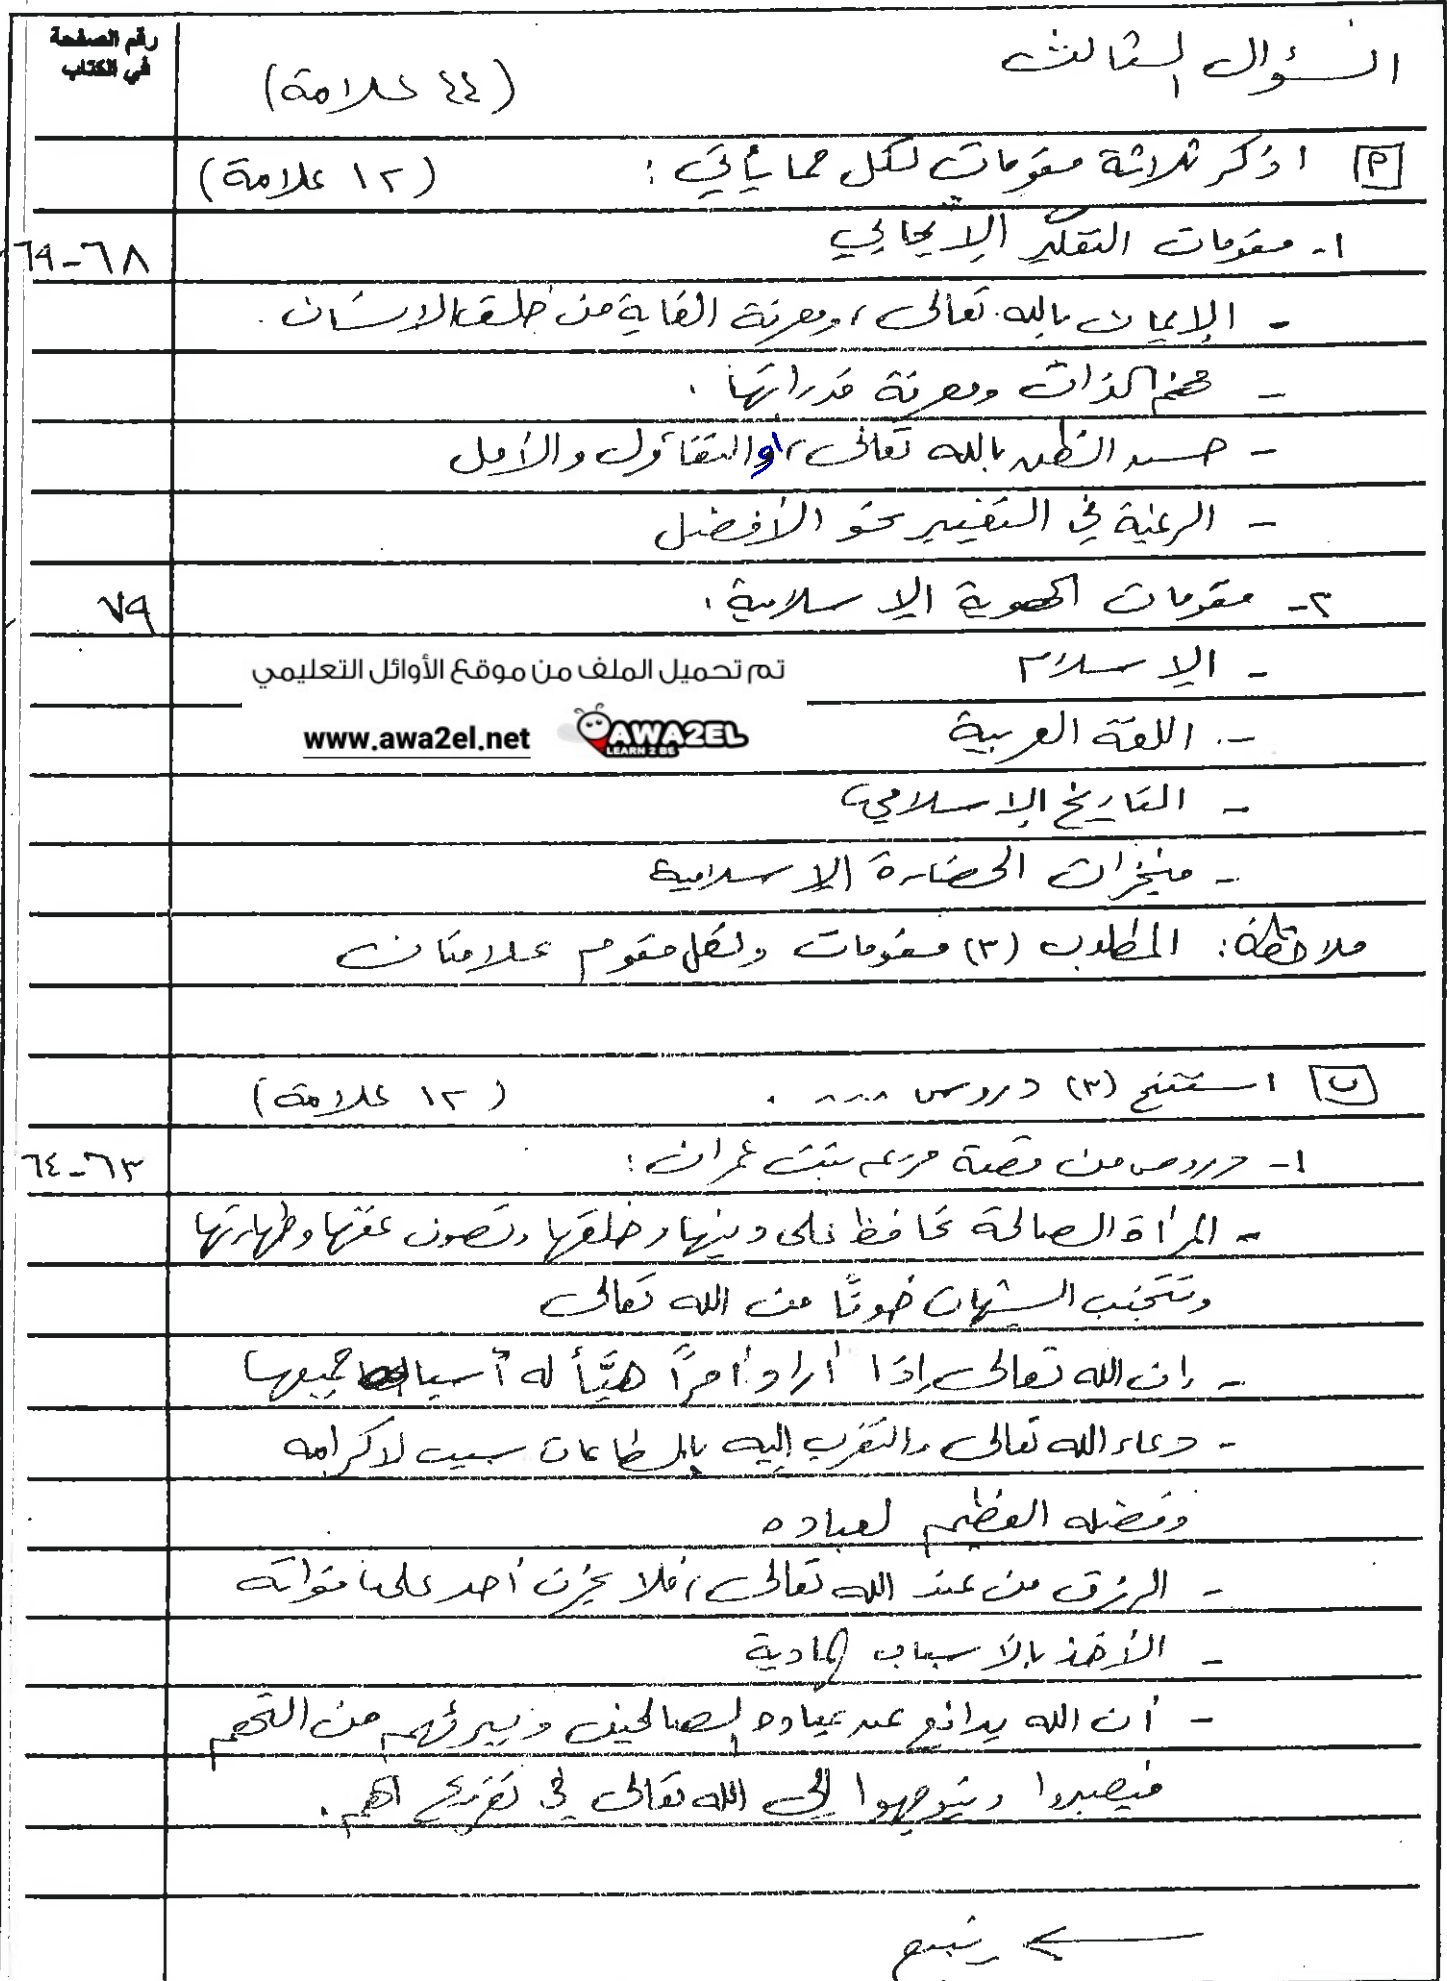 رقم الصفحة
في الكتاب
السؤال الثالث (٤٤ علامة)
أ اذكر ثلاثة مقومات لكل مما يأتي : (١٢ علامة)
١- مقومات التفكير الإيجابي ٦٨-٦٩
- الإيمان بالله تعالى، ومعرفة الغاية من خلق الإنسان.
- فهم الذات ومعرفة قدراتها.
- حسن الظن بالله تعالى، أو التفاؤل والأمل
- الرغبة في التغيير نحو الأفضل
٢- مقومات الهوية الإسلامية. ٧٩
- الإسلام
تم تحميل الملف من موقع الأوائل التعليمي
- اللغة العربية
www.awa2el.net
AWA2EL
LEARN 2 BE
- التاريخ الإسلامي
- منجزات الحضارة الإسلامية
ملاحظة: المطلوب (٣) مقومات ولكل مقوم علامتان
ب استنتج (٣) دروس ..... (١٢ علامة)
١- دروس من قصة مريم بنت عمران: ٦٣-٦٤
- المرأة الصالحة تحافظ على دينها وخلقها وتصون عفتها وطهارتها
وتتجنب الشبهات خوفًا من الله تعالى
- إن الله تعالى إذا أراد أمرًا هيّأ له أسبابه جميعها
- دعاء الله تعالى والتقرب إليه بالطاعات سبب لاكرامه
وفضله العظيم لعباده
- الرزق من عند الله تعالى، فلا يحزن أحد على فواته
- الأخذ بالأسباب المادية
- أن الله يدافع عن عباده الصالحين ويبرئهم من التهم
فيصبروا ويتوجهوا إلى الله تعالى في تفريج الهم.
يتبع